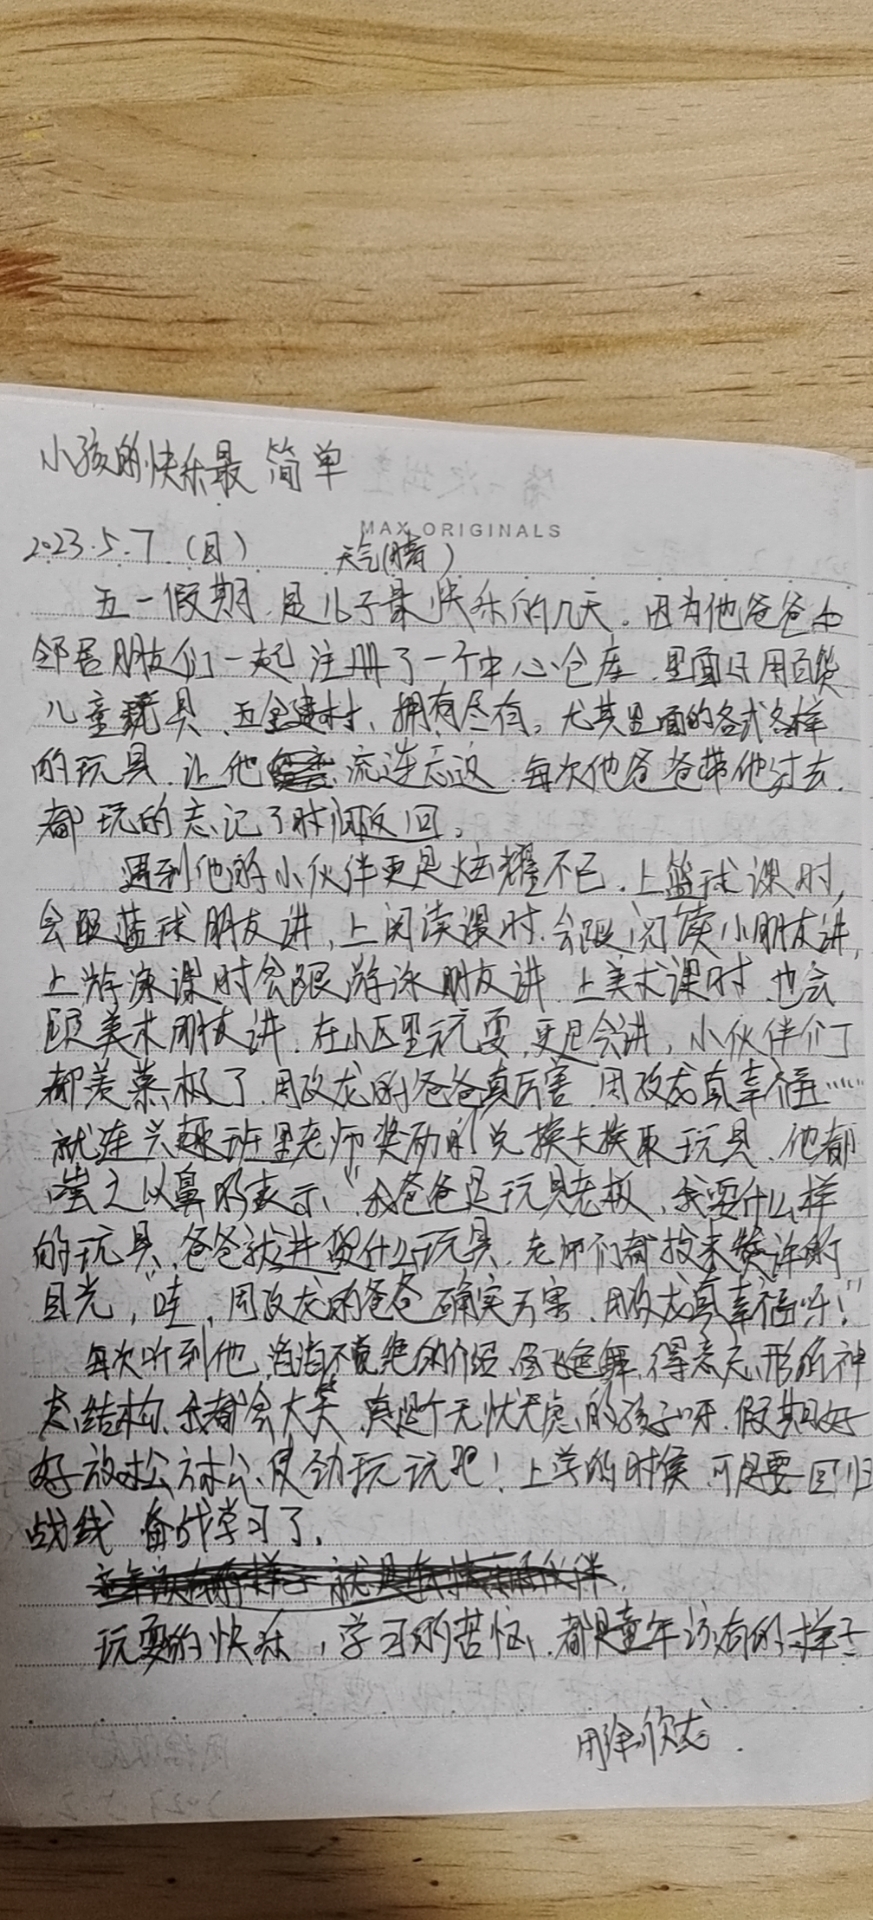 小孩的快乐最简单
MAX ORIGINALS
2023.5.7 (日) 天气(晴)
五一假期,是儿子最快乐的几天。因为他爸爸和
邻居朋友们一起注册了一个中心仓库,里面日用百货
儿童玩具、五金建材、拥有尽有。尤其里面的各式各样
的玩具,让他流连忘返,每次他爸爸带他过去,
都玩的忘记了时间返回。
遇到他的小伙伴更是炫耀不已,上篮球课时,
会跟蓝球朋友讲,上阅读课时,会跟阅读小朋友讲,
上游泳课时会跟游泳朋友讲,上美术课时,也会
跟美术朋友讲,在小区里玩耍,更是会讲,小伙伴们
都羡慕极了,周改龙的爸爸真厉害,周改龙真幸福……
就连兴趣班里老师奖励的兑换卡换取玩具,他都
嗤之以鼻的表示,“我爸爸是玩具老板,我要什么样
的玩具,爸爸就进货什么玩具,老师们都投来赞许的
目光,“哇,周改龙的爸爸确实厉害,周改龙真幸福呀!”
每次听到他,滔滔不竟绝的介绍,眉飞色舞,得意忘形的神
态结构,我都会大笑,真是个无忧无虑的孩子呀,假期好
好放松放松,使劲玩玩吧!上学的时候,可是要回归
战线,备战学习了。
玩耍的快乐,学习的苦恼,都是童年该有的样子